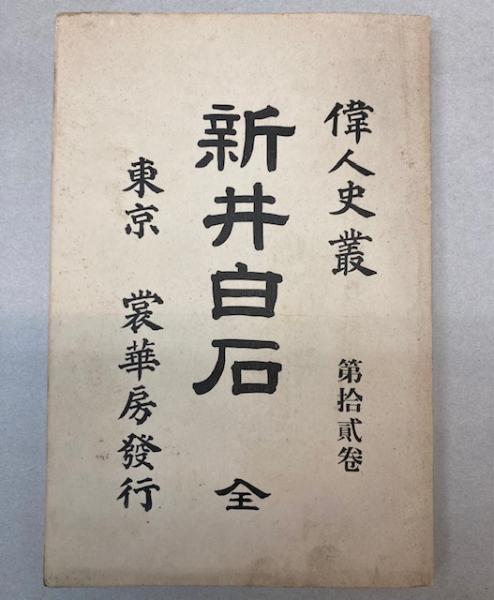 偉人史叢 第拾貳卷
新井白石 全
東京 裳華房發行